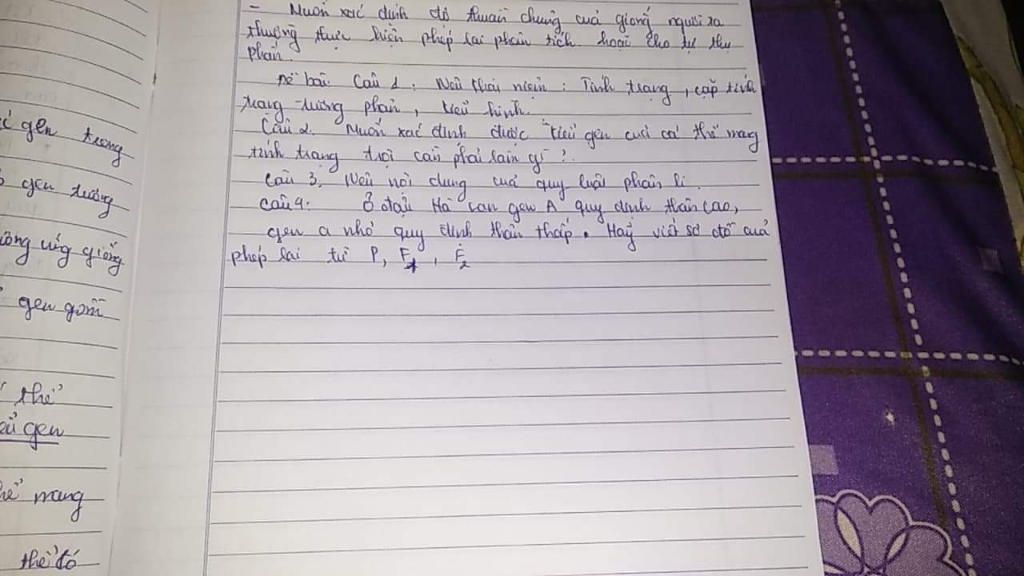 - Muốn xác định độ thuần chủng của giống người ta
thường thực hiện phép lai phân tích hoặc cho tự thụ
phấn.
Đề bài: Câu 1. Nêu khái niệm: Tính trạng, cặp tính
trạng tương phản, kiểu hình.
Câu 2. Muốn xác định được kiểu gen của cá thể mang
tính trạng trội cần phải làm gì?
Câu 3. Nêu nội dung của quy luật phân li.
Câu 4: Ở đậu Hà Lan gen A quy định thân cao,
gen a nhỏ quy định thân thấp. Hãy viết sơ đồ của
phép lai từ P, F1, F2
gen trong
gen tương
ông ứng giống
gen gồm
thể
gen
mang
thể đó